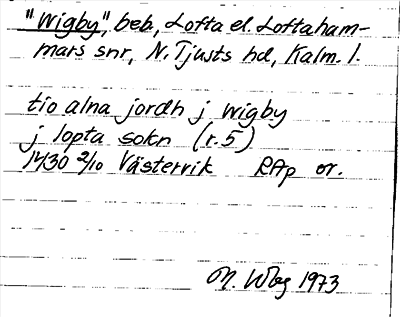 "Wigby", beb, Lofta el. Loftaham-
mars snr, N. Tjusts hd, Kalm. l.
tio alna jordh j wigby
j lopta sokn (r. 5)
1430 2/10 Västervik RAp or.
M. Wbg 1973